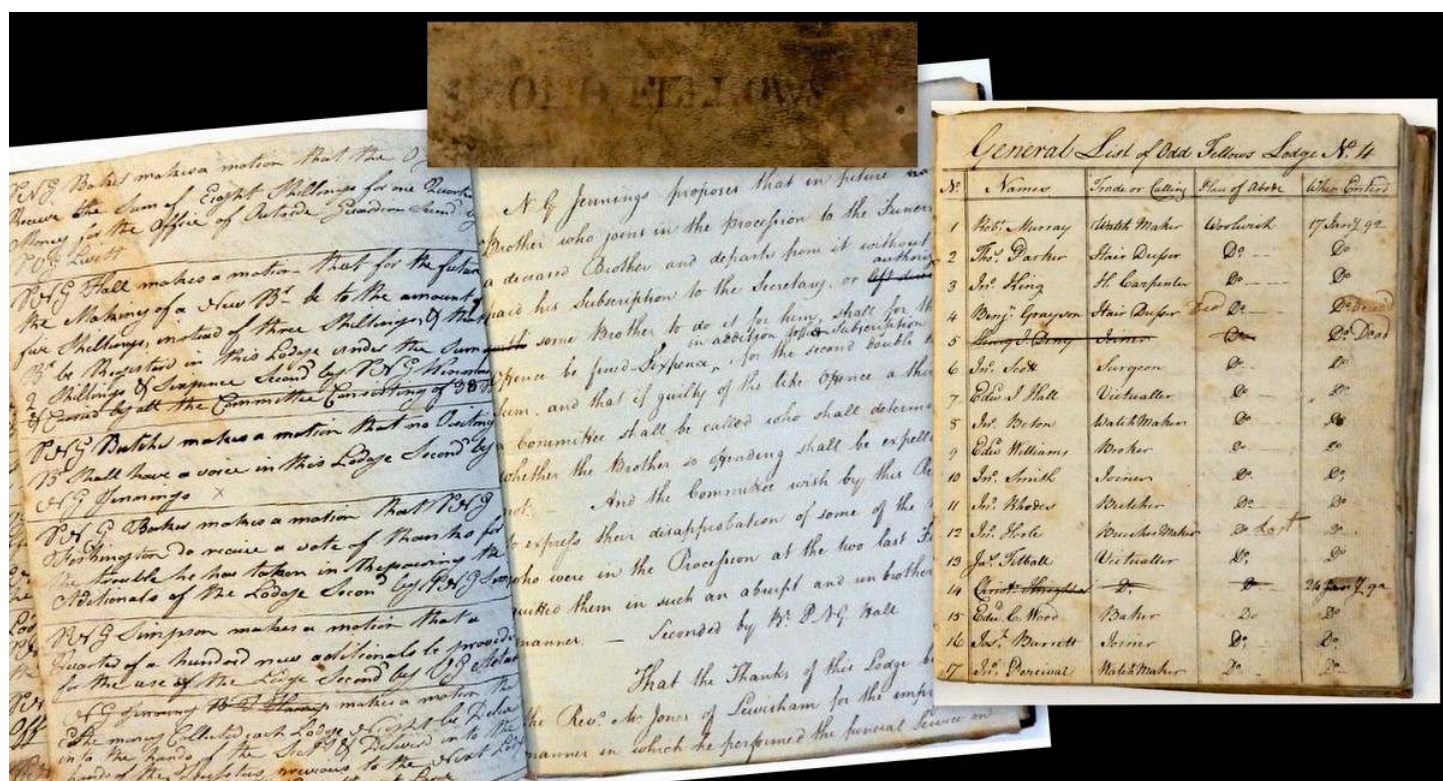 P.N.G Baker makes a motion that the
Receive the Sum of Eight Shillings for one
Money for the Office of Outside Guardian Second by
P.V.G Lovett
P.N.G Hall makes a motion that for the future
the Making of a New Br. be to the amount of
five Shillings, instead of three Shillings, & that
Br. be Registerd in this Lodge under the Sum
2 Shillings & Sixpence Second by P.N.G
& Carried by all the Committee Consisting of
P.N.G Butcher makes a motion that no Visiting
Br. Shall have a voice in this Lodge Second by
N G Jennings
P.N.G Baker makes a motion that P.N.G
do receive a vote of thanks for
the trouble he has taken in the
Aditionals of the Lodge Second by P.N.G
P.N.G Simpson makes a motion that a
Quarter of a hundred new aditionals be
for the use of the Lodge Second by V.G
N G Jennings makes a motion
the money Collected each Lodge Night be
into the hands of the & Deliverd into the
hands of the previous to the Next
N. G Jennings proposes that in future no
Brother who joins in the Procession to the
a deceased Brother and departs from it without
paid his Subscription to the Secretary, or authoriz
some Brother to do it for him, shall for the
in addition to his Subscription
Offence be fined Sixpence, for the second double
Sum, and that if guilty of the like Offence a
a Committee shall be called who shall
whether the Brother so offending shall be
not. And the Committee wish by this
to express their disapprobation of some of the
who were in the Procession at the two last
quitted them in such an abrupt and unbrother
manner. — Seconded by Br. P.N.G Hall
That the Thanks of this Lodge be
the Revd. Mr. Jones of Lewisham for the
manner in which he performed the funeral Service on
General List of Odd Fellows Lodge No. 4
No. Names Trade or Calling Place of Abode When Enterd
1 Robt. Murray Watch Maker Woolwich 17 Jany. 92
2 Thos. Darker Hair Dresser Do. Do
3 Jno. King H. Carpenter Do. Do
4 Benjn. Grayson Hair Dresser Do. Do. Dead
5 Joiner Do Do. Dead
6 Jno. Scott Surgeon Do. Do
7 Edwd. J. Hall Victualler Do. Do.
8 Jno. Beton Watch Maker Do. Do
9 Edwd. Williams Broker Do. Do
10 Jno. Smith Joiner Do. Do.
11 Jno. Rhodes Butcher Do. Do
12 Jno. Hoole Breeches Maker Do Do.
13 Jas. Titball Victualler Do. Do
14 Do. Do 24 Jany. 92
15 Edwd. C. Wood Baker Do Do.
16 Josh. Barrott Joiner Do. Do.
17 Jno. Percival Watch Maker Do. Do